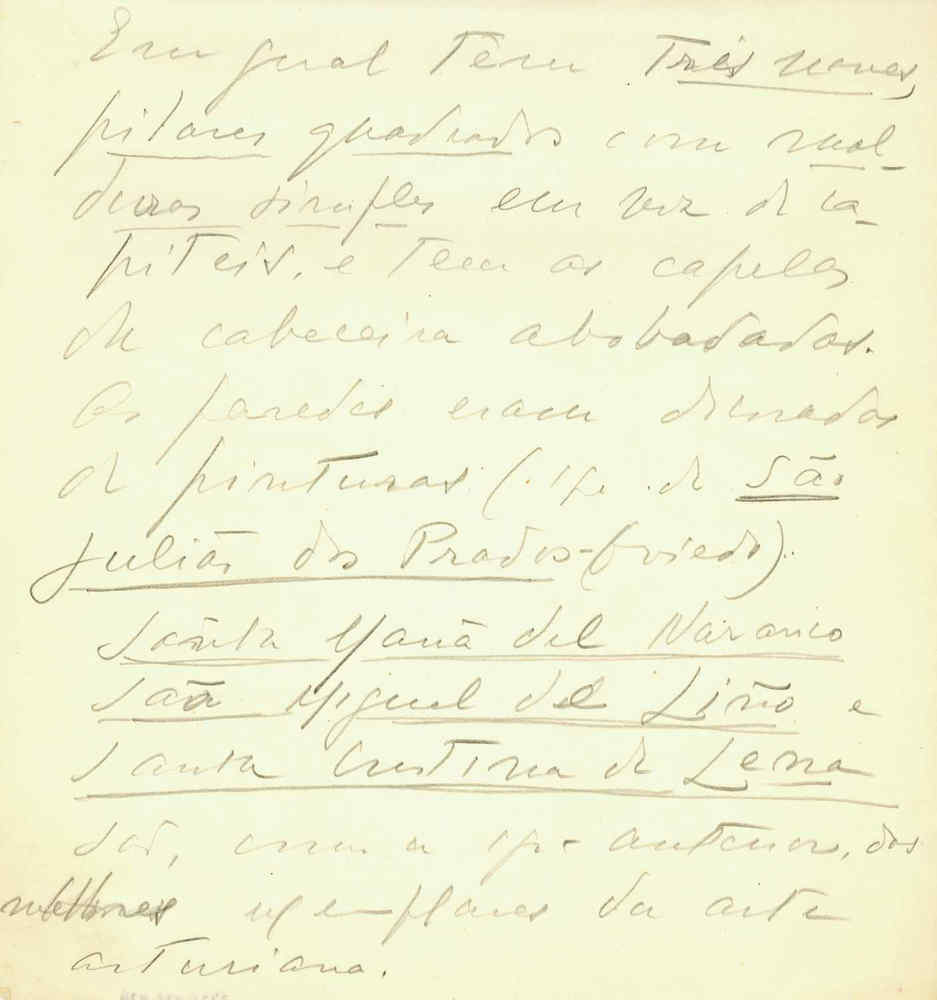 Em geral têm três naves,
pilares quadrados com mol-
duras simples em vez de ca-
piteis, e teem as capelas
da cabeceira abobadadas.
As paredes eram ornadas
de pinturas (. ig. de São
Julião dos Prados-Oviedo).
Santa Maria del Naranco
São Miguel del Liño e
Santa Cristina de Lena
são, com a ig. anterior, dos
melhores exemplares da arte
asturiana.